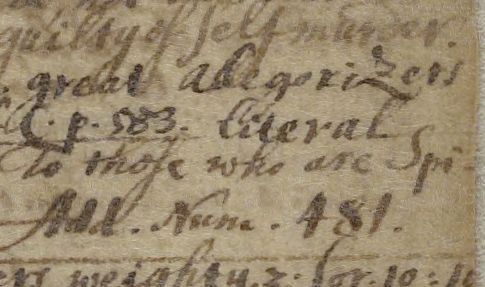 guilty of self murder.
great Allegorizers
C. p. 583. literal
to those who are Spi-
Add. Num. 481.
weighty. 2. Cor. 10: 10